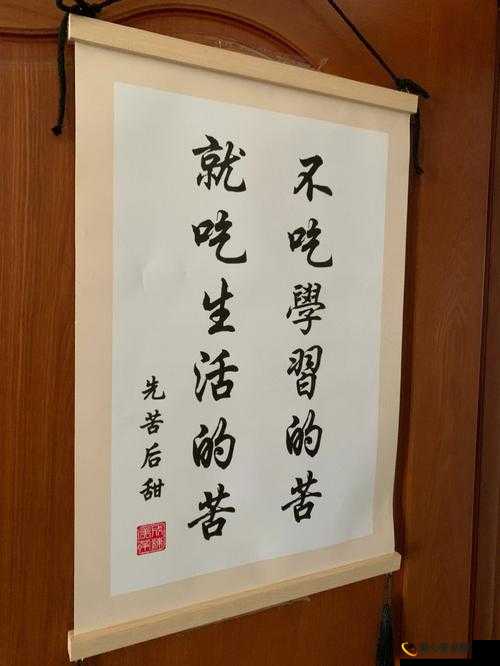 不吃學習的苦
就吃生活的苦
先苦后甜